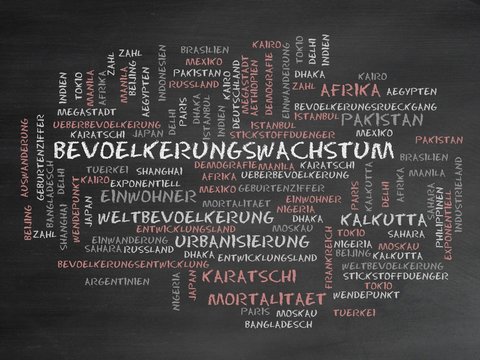 KAIRO TOKIO DELHI INDIEN
BRASILIEN
MEXIKO
PAKISTAN
RUSSLAND
INDIEN TOKIO MANILA AFRIKA
ZAHL ZAHL
MANILA BEIJING AEGYPTEN INDONESIEN
KAIRO DEUTSCHLAND MEGASTADT AETHOPIEN DEMOGRAFIE
EINWANDERUNG
DHAKA
ZAHL
AFRIKA
KAIRO
AEGYPTEN
MEGASTADT
DELHI PARIS DHAKA ISTANBUL INDIEN
BEVOELKERUNGSRUECKGANG
ISTANBUL
PAKISTAN
UEBERBEVOELKERUNG
KARATSCHI
JAPAN
ISTANBUL
STICKSTOFFDUENGER
MEXIKO
PAKISTAN
AUSWANDERUNG GEBURTENZIFFER
BEVOELKERUNGSWACHSTUM
BANGLADESCH
TUERKEI
SHANGHAI
DEMOGRAFIE
MANILA
KARATSCHI
BRASILIEN
KAIRO
EXPONENTIELL
AFRIKA
UEBERBEVOELKERUNG
KALKUTTA
AFRIKA
MANILA
EINWOHNER
MEXIKO
GEBURTENZIFFER
PARIS
DELHI
MORTALITAET
EINWOHNER
NIGERIA
BEIJING ZAHL SHANGHAI DELHI WENDEPUNKT JAPAN
WELTBEVOELKERUNG
DHAKA
KALKUTTA
SAHARA PHILIPPINEN EXPONENTIELL INDUSTRIELAND
ENTWICKLUNGSLAND
EINWANDERUNG
URBANISIERUNG
FRANKREICH
TOKIO
SAHARA
SAHARA
RUSSLAND
NIGERIA
MOSKAU
DHAKA
ENTWICKLUNGSLAND
BEIJING
KALKUTTA
BEVOELKERUNGSENTWICKLUNG
WELTBEVOELKERUNG
ARGENTINIEN
NIGERIA JAPAN
KARATSCHI
MOSKAU
STICKSTOFFDUENGER
TOKIO
MORTALITAET
WENDEPUNKT
PARIS
MOSKAU
TUERKEI
BANGLADESCH